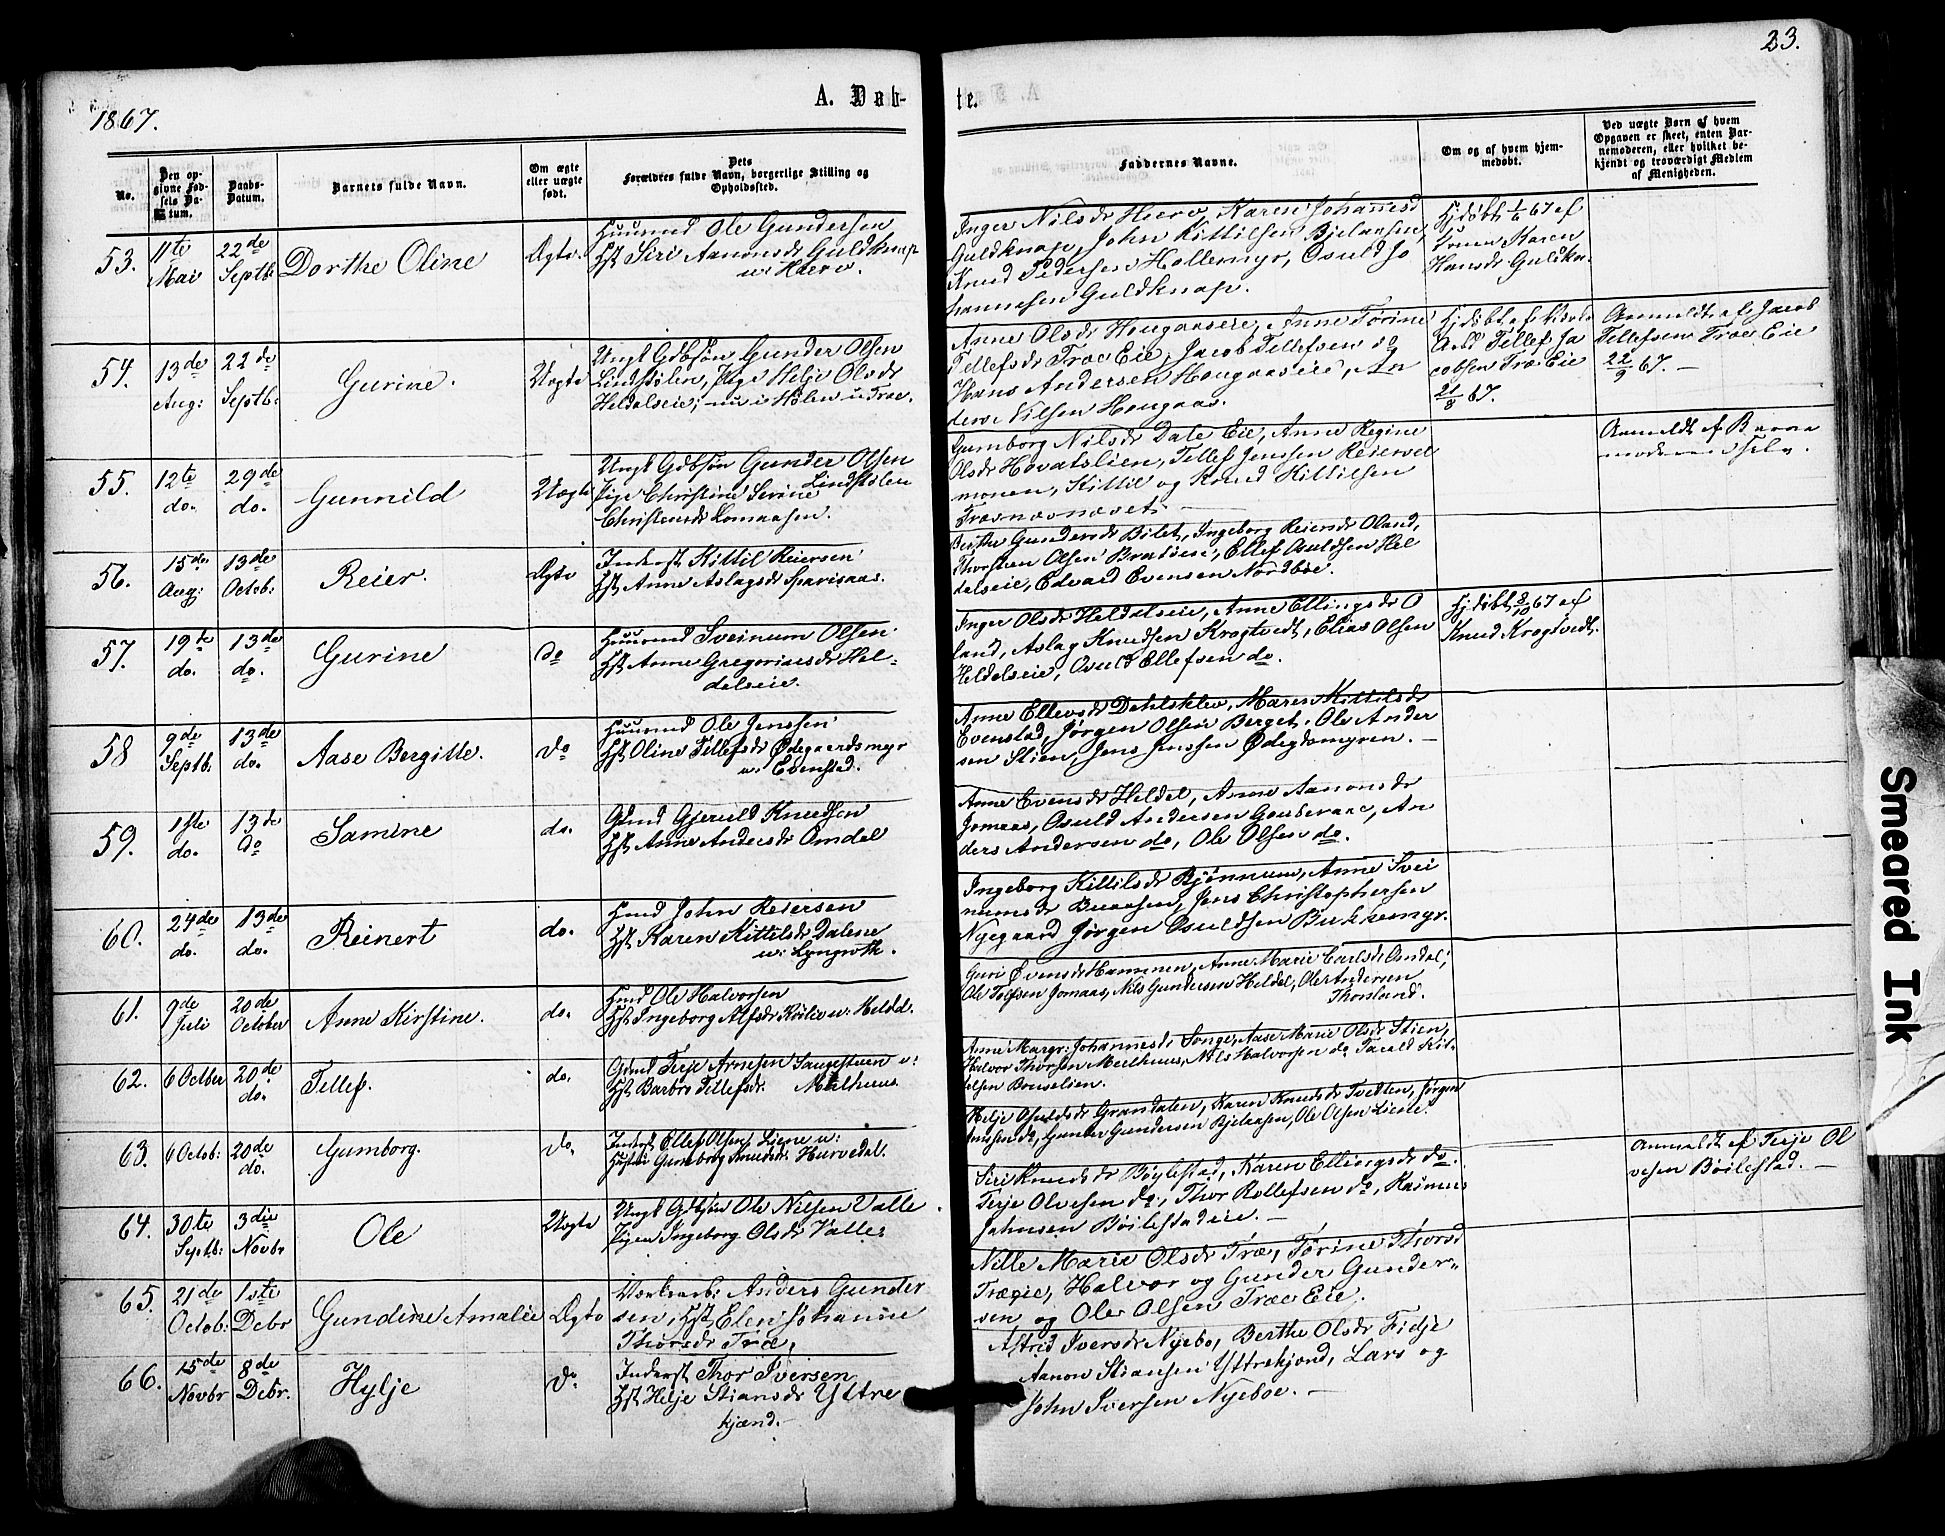 23.
A. Døb-
te.
1867.
No.
Den op-
givne Fød-
sels Da-
tum.
Daabs-
Datum.
Barnets fulde Navn.
Om ægte
eller uægte
født.
Dets
Forældres fulde Navn, borgerlige Stilling og
Opholdssted.
Faddernes Navne.
Om og af hvem hjem-
medøbt.
Ved uægte Børn af hvem
Opgaven er skeet, enten Bar-
nemoderen, eller hvilket be-
kjendt og troværdigt Medlem
af Menigheden.
53.
11te
Mai
22de
Septb:
Dorthe Oline
Ægte
Huusmd Ole Gundersen
Hst Siri Aanonsdr Guldknap
u: Hierv.
Inger Nilsdr Hierv, Karen Johannesd
Guldknap, John Kittilsen Bjelaasen,
Knud Pedersen Hollemyr, Osuld Jo
hannesen Guldknap.
Hjdøbt 1/6 67 af
Karen
Hansdr Guldkn.
54.
13de
Aug:
22de
Septb:
Gurine.
Uægte
Ungk Gdbsøn Gunder Olsen
Lindstølen, Pige Helje Olsdr
Heldalseie; nu i Hølen u: Træe.
Anne Olsdr Hougaaseie, Anne Tørine
Tellefsdr Træe Eie, Jacob Tellefsen do
Hans Andersen Hougaaseie, An
ders Nilsen Hougaas.
Hjdøbt af
Tellef Ja
cobsen Træe Eie
21/8 67.
Anmeldt af Jacob
Tellefsen Træe Eie
22/9 67. —
55.
12te
do.
29de
do.
Gunnild
Uægte
Ungk Gdbsøn Gunder Olsen
Lindstølen
Pige Christine Serine
Christensdr Lomaasen.
Gumborg Nilsdr Dale Eie, Anne Regine
Olsdr Hovatslien, Tellef Jenssen Reiersvel
monen, Kittil og Knud Kittilsen
Trævnæsnæset. —
Anmeldt af Barne
moderen selv.
56.
15de
Aug:
13de
Octob:
Reier.
Ægte
Inderst Kittil Reiersen
Hst Anne Aslagsdr Sparisaas.
Berthe Gundersdr Bilet, Ingeborg Reiersdr Oland,
Thorsten Olsen Bratlieie, Ellef Osuldsen Hel
dalseie, Edvard Evensen Nordbøe.
57.
19de
do.
13de
do.
Gurine
do
Huusmd Sveinum Olsen
Hst Anne Gregoriusdr Hel=
dalseie.
Inger Olsdr Heldalseie, Anne Ellingsdr O
land, Aslag Knudsen Krogtvedt, Elias Olsen
Heldalseie, Osuld Ellefsen do.
Hjdøbt 8/10 67 af
Knud Krogtvedt.
58
9de
Septb:
13de
do.
Aase Bergitte.
do
Huusmd Ole Jenssen
Hst Oline Tellefsdr Ødegaardsmyr
u: Evenstad.
Anne Ellevsdr Dahlsklev, Maren Kittilsdr
Evenstad, Jørgen Olsen Berget, Ole Ander
sen Stien, Jens Jenssen Ødegdsmyren. —
59.
11te
do.
13de
do
Samine
do.
Gdmd Gjeruld Knudsen
Hst Anne Andersdr Omdal
Anne Evensdr Heldal, Anne Aanonsdr
Jomaas, Osuld Andersen Gauseraae, An
ders Andersen do, Ole Olsen do.
60.
24de
do.
13de
do.
Reinert
do.
Hmd John Reiersen
Hst Karen Kittilsdr Dalene
u: Lyngroth.
Ingeborg Kittilsdr Bjønnum, Anne Svei
numsdr Buaasen, Jens Christophersen
Nyegaard Jørgen Osuldsen Bukkemyr.
61.
9de
Juli
20de
October
Anne Kirstine.
do.
Hmd Ole Halvorsen
Hst Ingeborg Alfsdr Køiliv u: Heldal.
Guri Evensdr Hammen, Anne Marie Carlsdr Omdal,
Ole Tolfsen Jomaas, Nils Gundersen Heldal, Ole Andersen
Thorsland.
62.
6 Octber
20de
do.
Tellef.
do.
Gdmd Terje Arnesen Saugestuen u:
Hst Barbro Tellefsdr. Mulhuus.
Anne Margr: Johannesdr Songe, Aase Marie Olsdr Stien,
Halvor Thorsen Mulhuus, Nils Halvorsen do Tarald Kit-
telsen Bouselien.
63.
6 Octob:
20de
do.
Gumborg.
do.
Inderst Ellef Olsen Liene u:
Hustru Gumborg Knudsdr. Hurvedal.
Helje Osuldsdr Grandalen, Karen Knudsdr Tvedten, Jørgen
Jenssen do, Gunder Gundersen Bjelaasen, Ole Olsen Liene.
64.
30te
Septb:
3die
Novbr
Ole
Uægte
Ungk Gdbsøn Ole Nilsen Valle
Pigen Ingeborg Olsdr Valle.
Siri Knudsdr Bøylestad, Karen Ellingsdr do.
Terje Olvesen do., Thor Rollefsen do, Rasmus
Johnsen Bøilestadeie. —
Anmeldt af Terje Ol
vesen Bøilestad. —
65.
21de
Octob:
1ste
Debr
Gundine Amalie
Ægte
Værksarb: Anders Gunder
sen, Hst Elen Johanne
Thorsdr Træ.
Nille Marie Olsdr Træ, Tørine Thorsd
Træeie, Halvor og Gunder Gunder-
sen og Ole Olsen Træe Eie.
66.
15de
Novbr
8de
Debr.
Hylje
do
Inderst Thor Iversen
Hst Helje Stiansdr Yttre
kjænd.
Astrid Iversdr Nyebo, Berthe Olsdr Fidje
Aanon Stiansen Yttrekjænd, Lars og
John Iversen Nyeboe. —
Smeared Ink